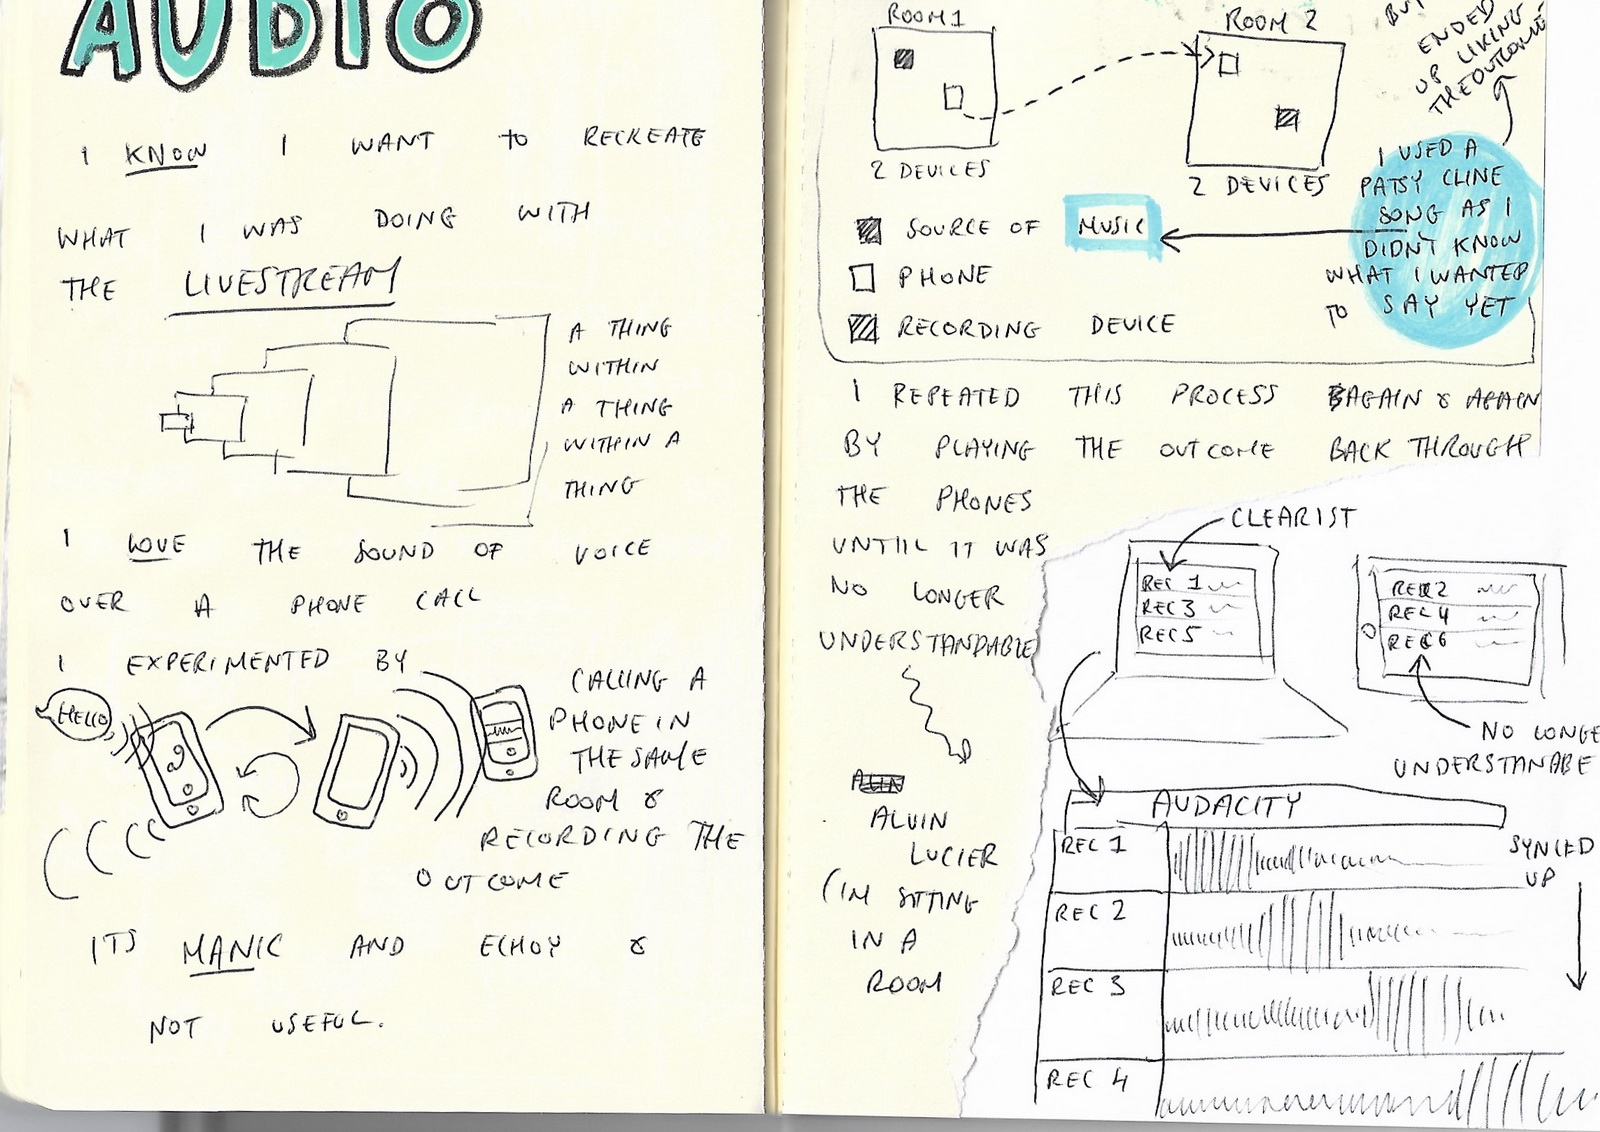 AUDIO
I KNOW I WANT TO RECREATE
WHAT I WAS DOING WITH
THE LIVESTREAM
A THING
WITHIN
A THING
WITHIN A
THING
I LOVE THE SOUND OF VOICE
OVER A PHONE CALL
I EXPERIMENTED BY
HELLO
CALLING A
PHONE IN
THE SAME
ROOM &
RECORDING THE
OUTCOME
ITS MANIC AND ECHOY &
NOT USEFUL.
ROOM 1
ROOM 2
2 DEVICES
2 DEVICES
SOURCE OF MUSIC
PHONE
RECORDING DEVICE
I USED A
PATSY CLINE
SONG AS I
DIDN'T KNOW
WHAT I WANTED
TO SAY YET
BUT
ENDED
UP LIKING
THE OUTCOME
I REPEATED THIS PROCESS AGAIN & AGAIN
BY PLAYING THE OUTCOME BACK THROUGH
THE PHONES
UNTIIL IT WAS
NO LONGER
UNDERSTANDABLE
ALVIN
LUCIER
(IM SITTING
IN A
ROOM
CLEARIST
REC 1
REC 3
REC 5
REC 2
REC 4
REC 6
NO LONGE
UNDERSTANABE
AUDACITY
REC 1
REC 2
REC 3
REC 4
SYNCED
UP